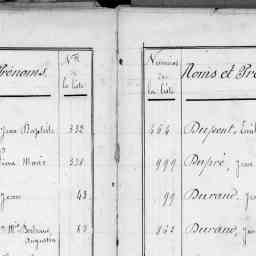 Prénoms.
Nos
de
la liste
Jean Baptiste 332
Marie 338
Jean 43
Mie Bertrand
Augustin 83
Numéros
de
la liste
Noms et Pré
464 Dupont, Emil
999 Dupré, Jean
99 Durand, Jea
862 Durand, Je